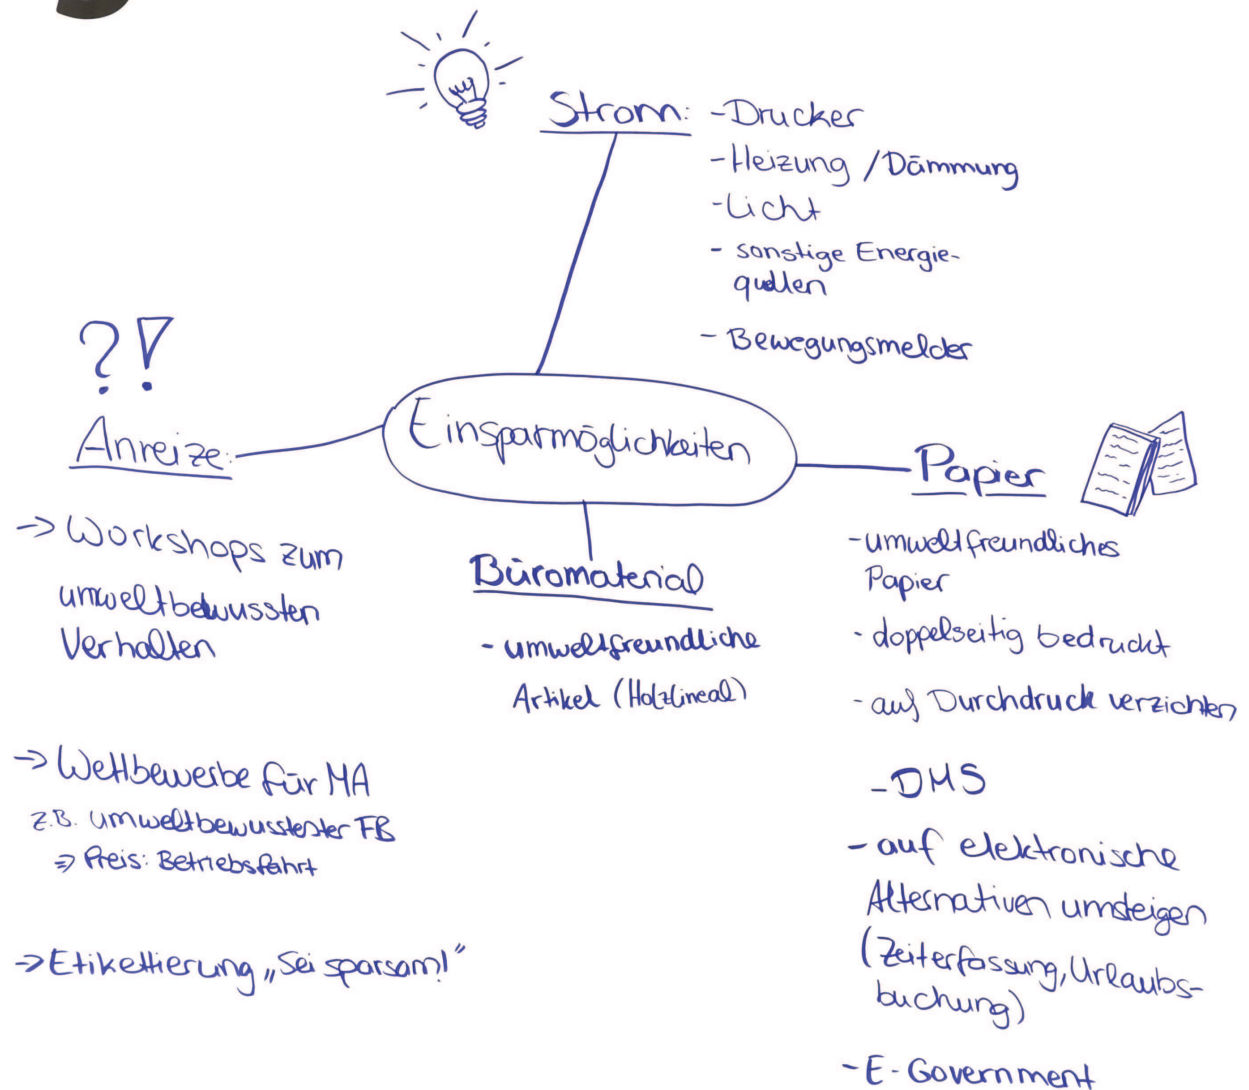 Strom:
-Drucker
-Heizung /Dämmung
-Licht
- sonstige Energie-
quellen
- Bewegungsmelder
?!
Anreize:
Einsparmöglichkeiten
-> Workshops zum
umweltbewussten
Verhalten
-> Wettbewerbe für MA
z.B. umweltbewusstester FB
=> Preis: Betriebsfahrt
-> Etikettierung „Sei sparsam!“
Büromaterial
- umweltfreundliche
Artikel (Holzlineal)
Papier
-umweltfreundliches
Papier
- doppelseitig bedruckt
- auf Durchdruck verzichten
-DMS
- auf elektronische
Alternativen umsteigen
(Zeiterfassung, Urlaubs-
buchung)
-E-Government